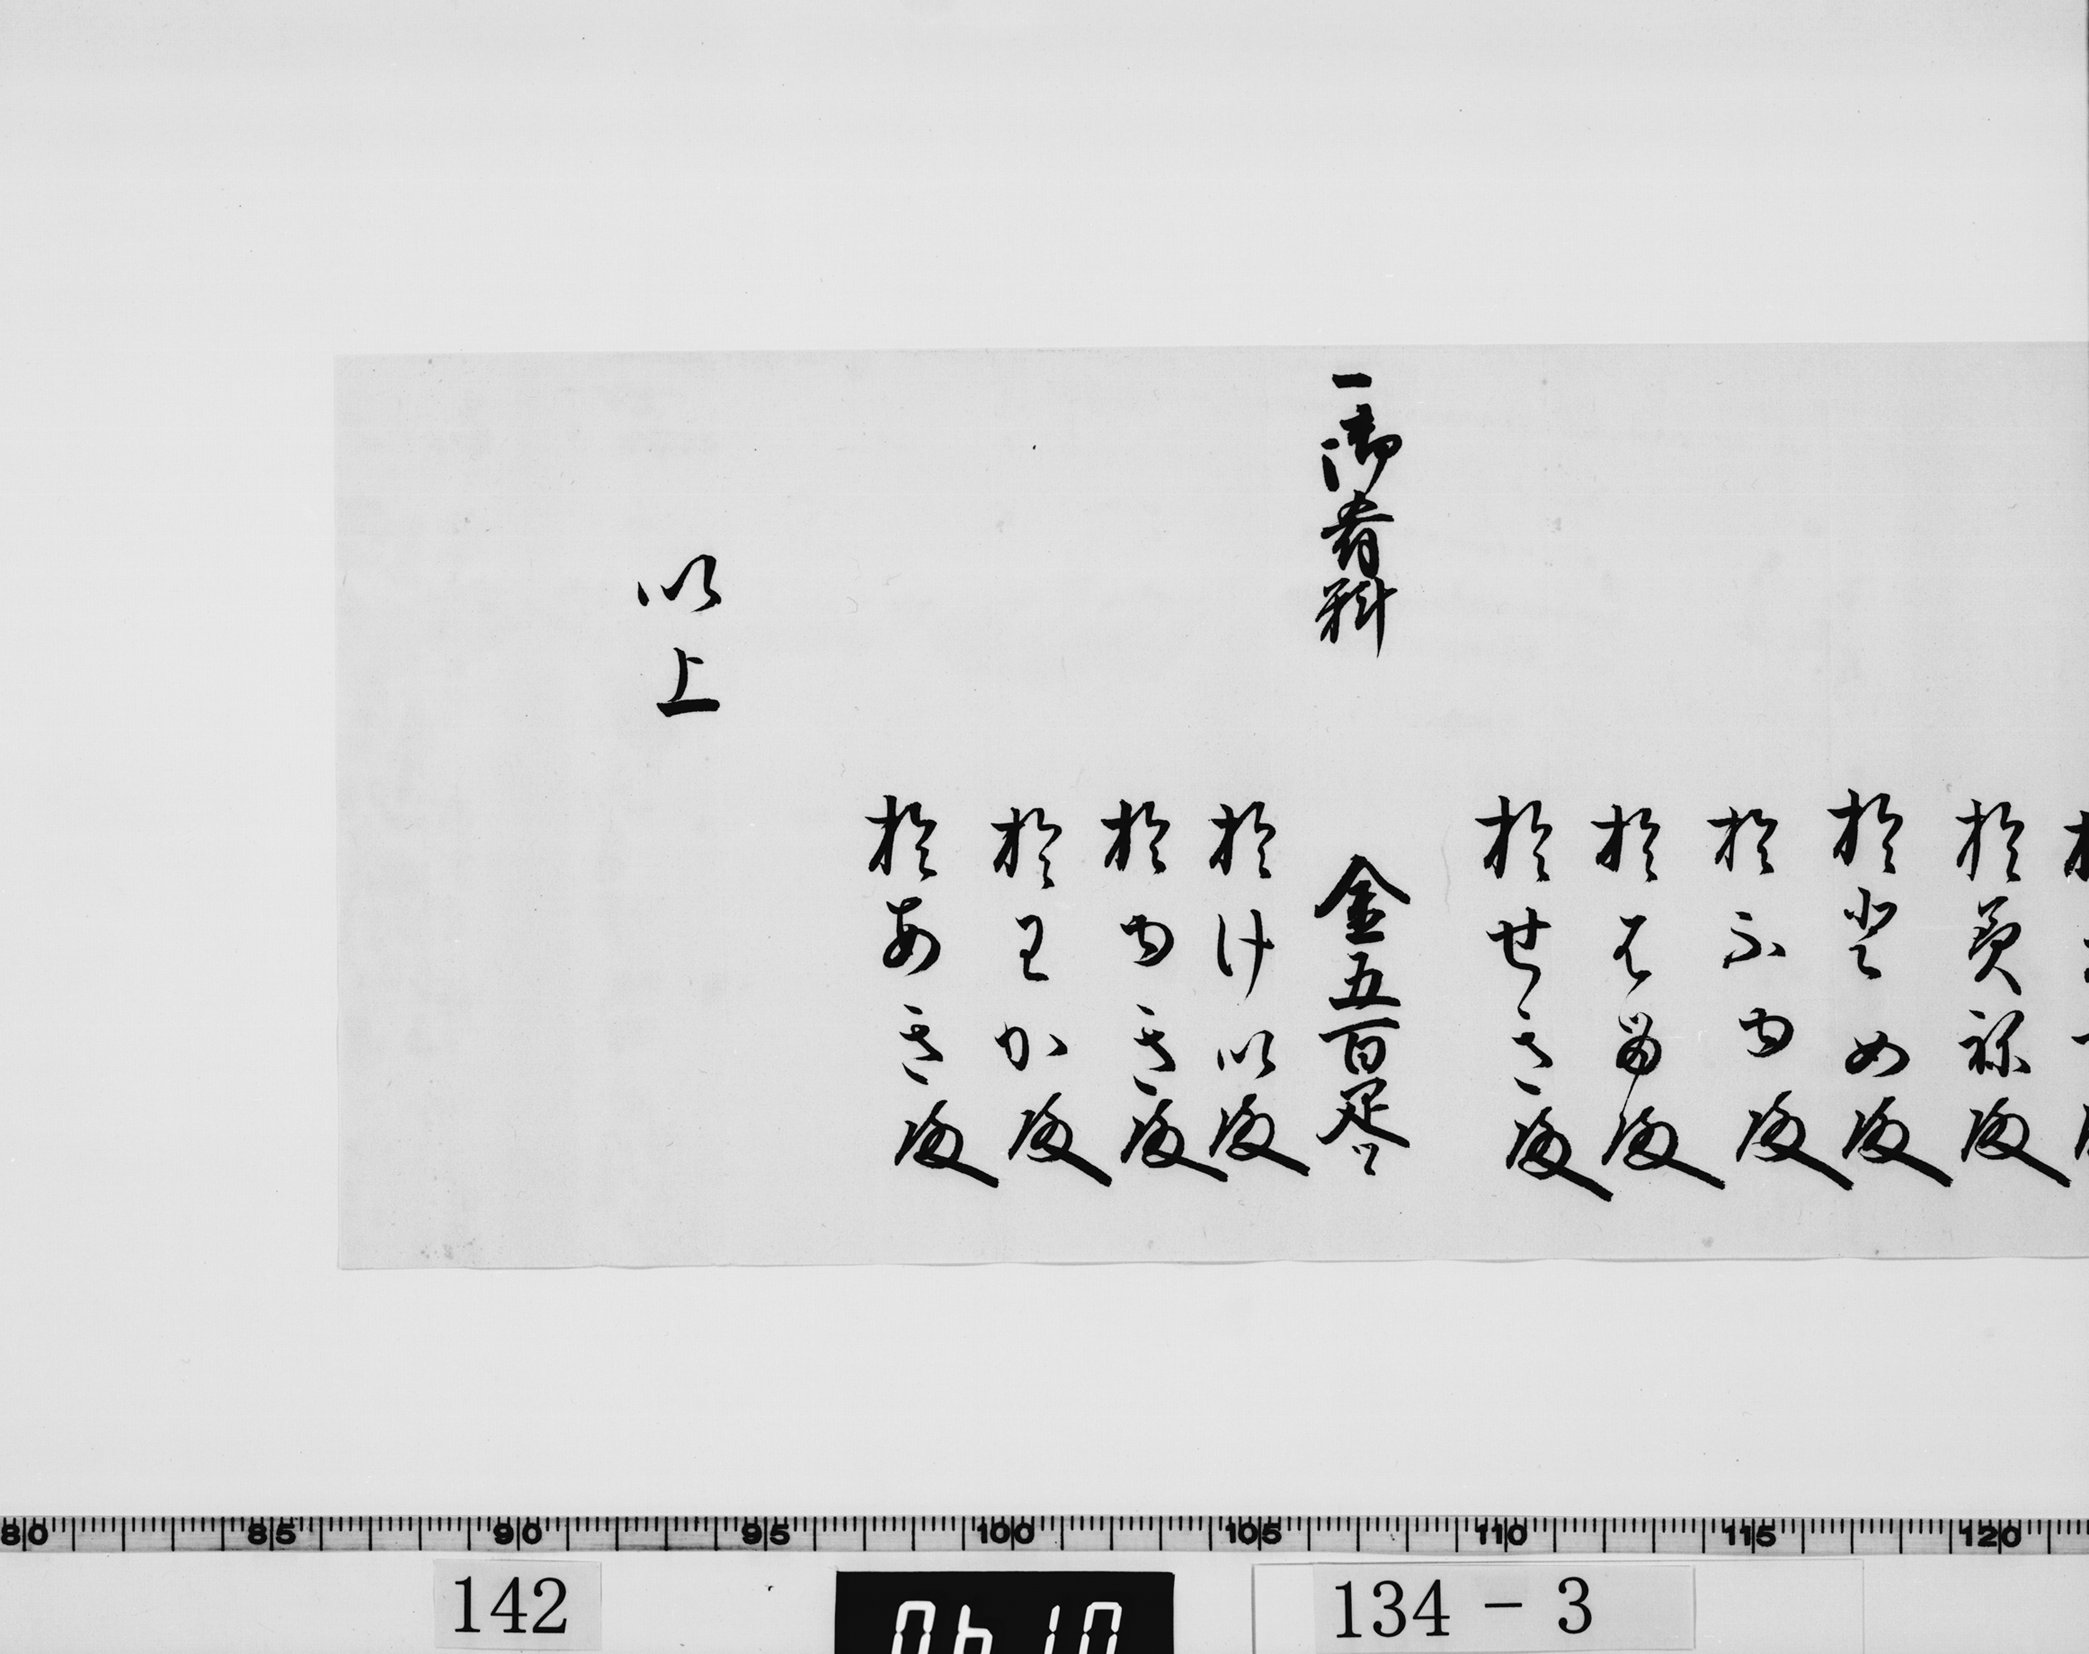 於美祢殿
於登め殿
於ふゆ殿
於はる殿
於せき殿
一御肴料　金五百疋ツヽ
於けい殿
於ゆき殿
於わか殿
於あき殿
以上
80 85 90 95 100 105 110 115 120
142
134 - 3